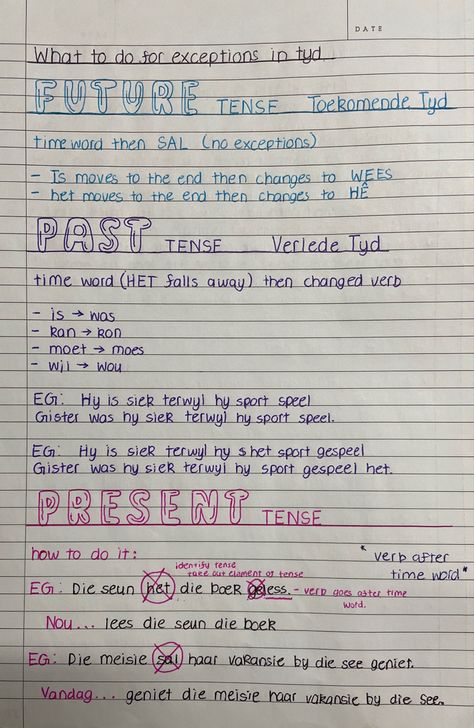 DATE
What to do for exceptions in tyd
FUTURE TENSE Toekomende Tyd
time word then SAL (no exceptions)
- Is moves to the end then changes to WEES
- het moves to the end then changes to HÊ
PAST TENSE Verlede Tyd
time word (HET falls away) then changed verb
- is → was
- kan → kon
- moet → moes
- wil → wou
EG: Hy is siek terwyl hy sport speel
Gister was hy siek terwyl hy sport speel.
EG: Hy is siek terwyl hy s het sport gespeel
Gister was hy siek terwyl hy sport gespeel het.
PRESENT TENSE
how to do it:
"verb after
time word"
identify tense
take out element of tense
EG: Die seun het die boek geless. - verb goes after time
word.
Nou... lees die seun die boek
EG: Die meisie sal haar vakansie by die see geniet.
Vandag... geniet die meisie haar vakansie by die see.